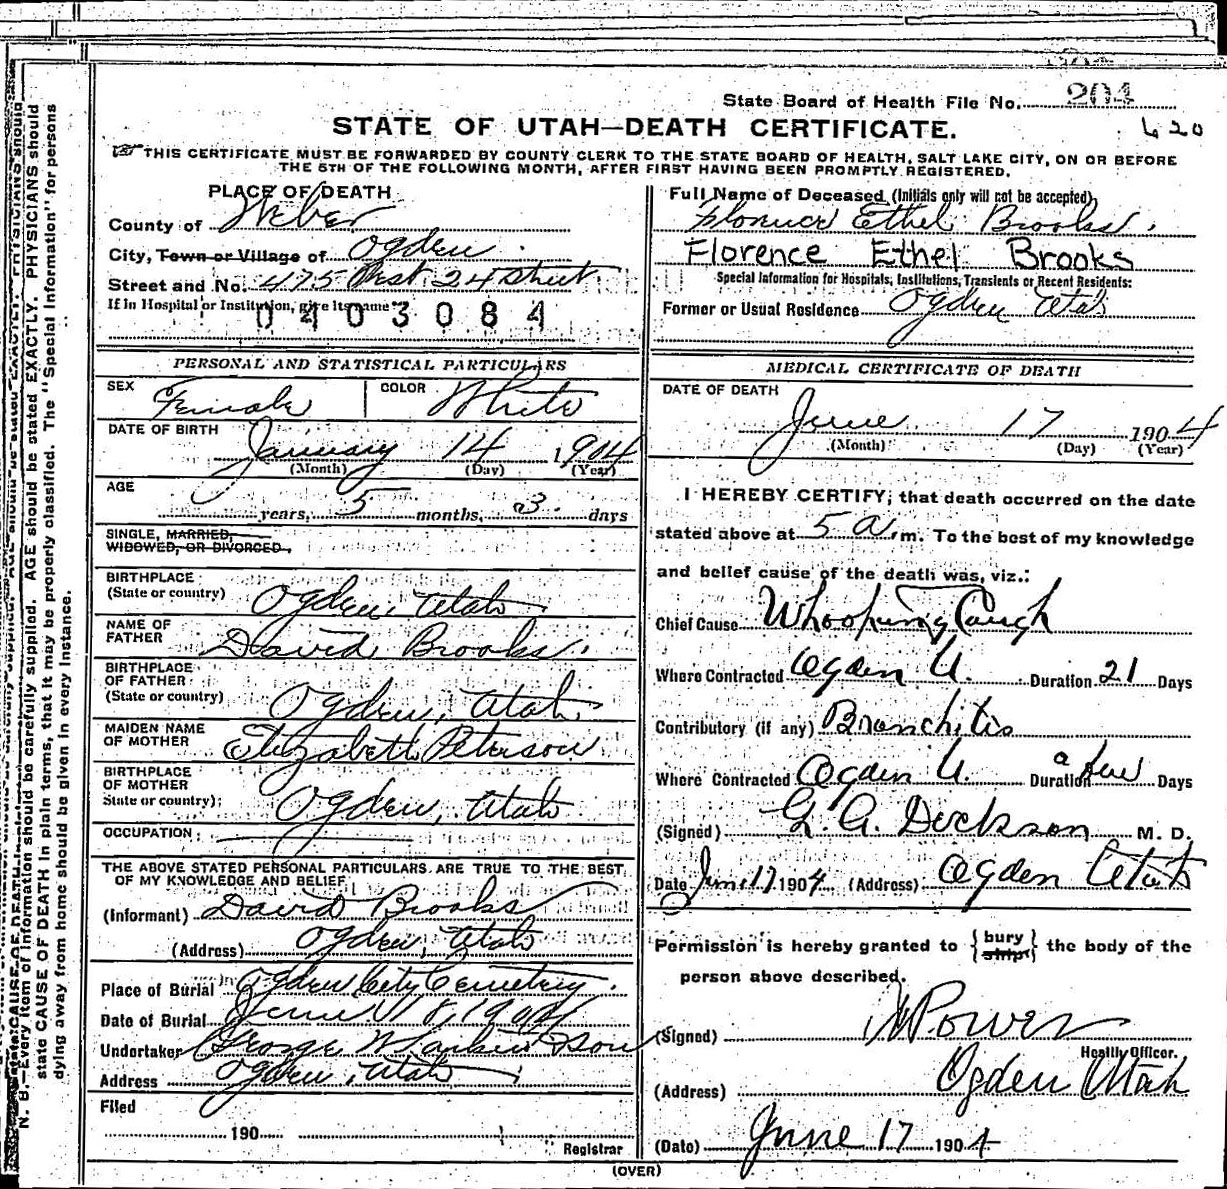 State Board of Health File No. 204
620
STATE OF UTAH—DEATH CERTIFICATE.
THIS CERTIFICATE MUST BE FORWARDED BY COUNTY CLERK TO THE STATE BOARD OF HEALTH, SALT LAKE CITY, ON OR BEFORE
THE 5TH OF THE FOLLOWING MONTH, AFTER FIRST HAVING BEEN PROMPTLY REGISTERED.
PLACE OF DEATH
County of Weber
City, Town or Village of Ogden
Street and No. 475 West 24 Street
If in Hospital or Institution, give its name
0403084
Full Name of Deceased (Initials only will not be accepted)
Florence Ethel Brooks.
Florence Ethel Brooks
Special Information for Hospitals, Institutions, Transients or Recent Residents:
Former or Usual Residence Ogden Utah
PERSONAL AND STATISTICAL PARTICULARS
SEX Female COLOR White
DATE OF BIRTH
January 14 1904
(Month) (Day) (Year)
AGE
years, 5 months, 3 days
SINGLE, MARRIED,
WIDOWED, OR DIVORCED.
BIRTHPLACE
(State or country) Ogden, Utah
NAME OF
FATHER David Brooks.
BIRTHPLACE
OF FATHER
(State or country) Ogden, Utah
MAIDEN NAME
OF MOTHER Elizabeth Peterson
BIRTHPLACE
OF MOTHER
State or country) Ogden, Utah
OCCUPATION
THE ABOVE STATED PERSONAL PARTICULARS ARE TRUE TO THE BEST
OF MY KNOWLEDGE AND BELIEF
(Informant) David Brooks
(Address) Ogden, Utah
Place of Burial Ogden City Cemetery.
Date of Burial June 18, 1904
Undertaker George W Larkin & Son
Address Ogden, Utah
Filed
190
Registrar
MEDICAL CERTIFICATE OF DEATH
DATE OF DEATH
June 17 1904
(Month) (Day) (Year)
I HEREBY CERTIFY, that death occurred on the date
stated above at 5 a. m. To the best of my knowledge
and belief cause of the death was, viz.:
Chief Cause Whooping Cough
Where Contracted Ogden U. Duration 21 Days
Contributory (if any) Bronchitis
Where Contracted Ogden U. Duration a few Days
(Signed) G. A. Dickson M. D.
Date June 17 1904 (Address) Ogden Utah
Permission is hereby granted to { bury
ship } the body of the
person above described.
(Signed) Power
Health Officer.
(Address) Ogden Utah
(Date) June 17 1904
(OVER)
N. B.—Every item of information should be carefully supplied. AGE should be stated EXACTLY. PHYSICIANS should
state CAUSE OF DEATH in plain terms, that it may be properly classified. The "Special Information" for persons
dying away from home should be given in every instance.